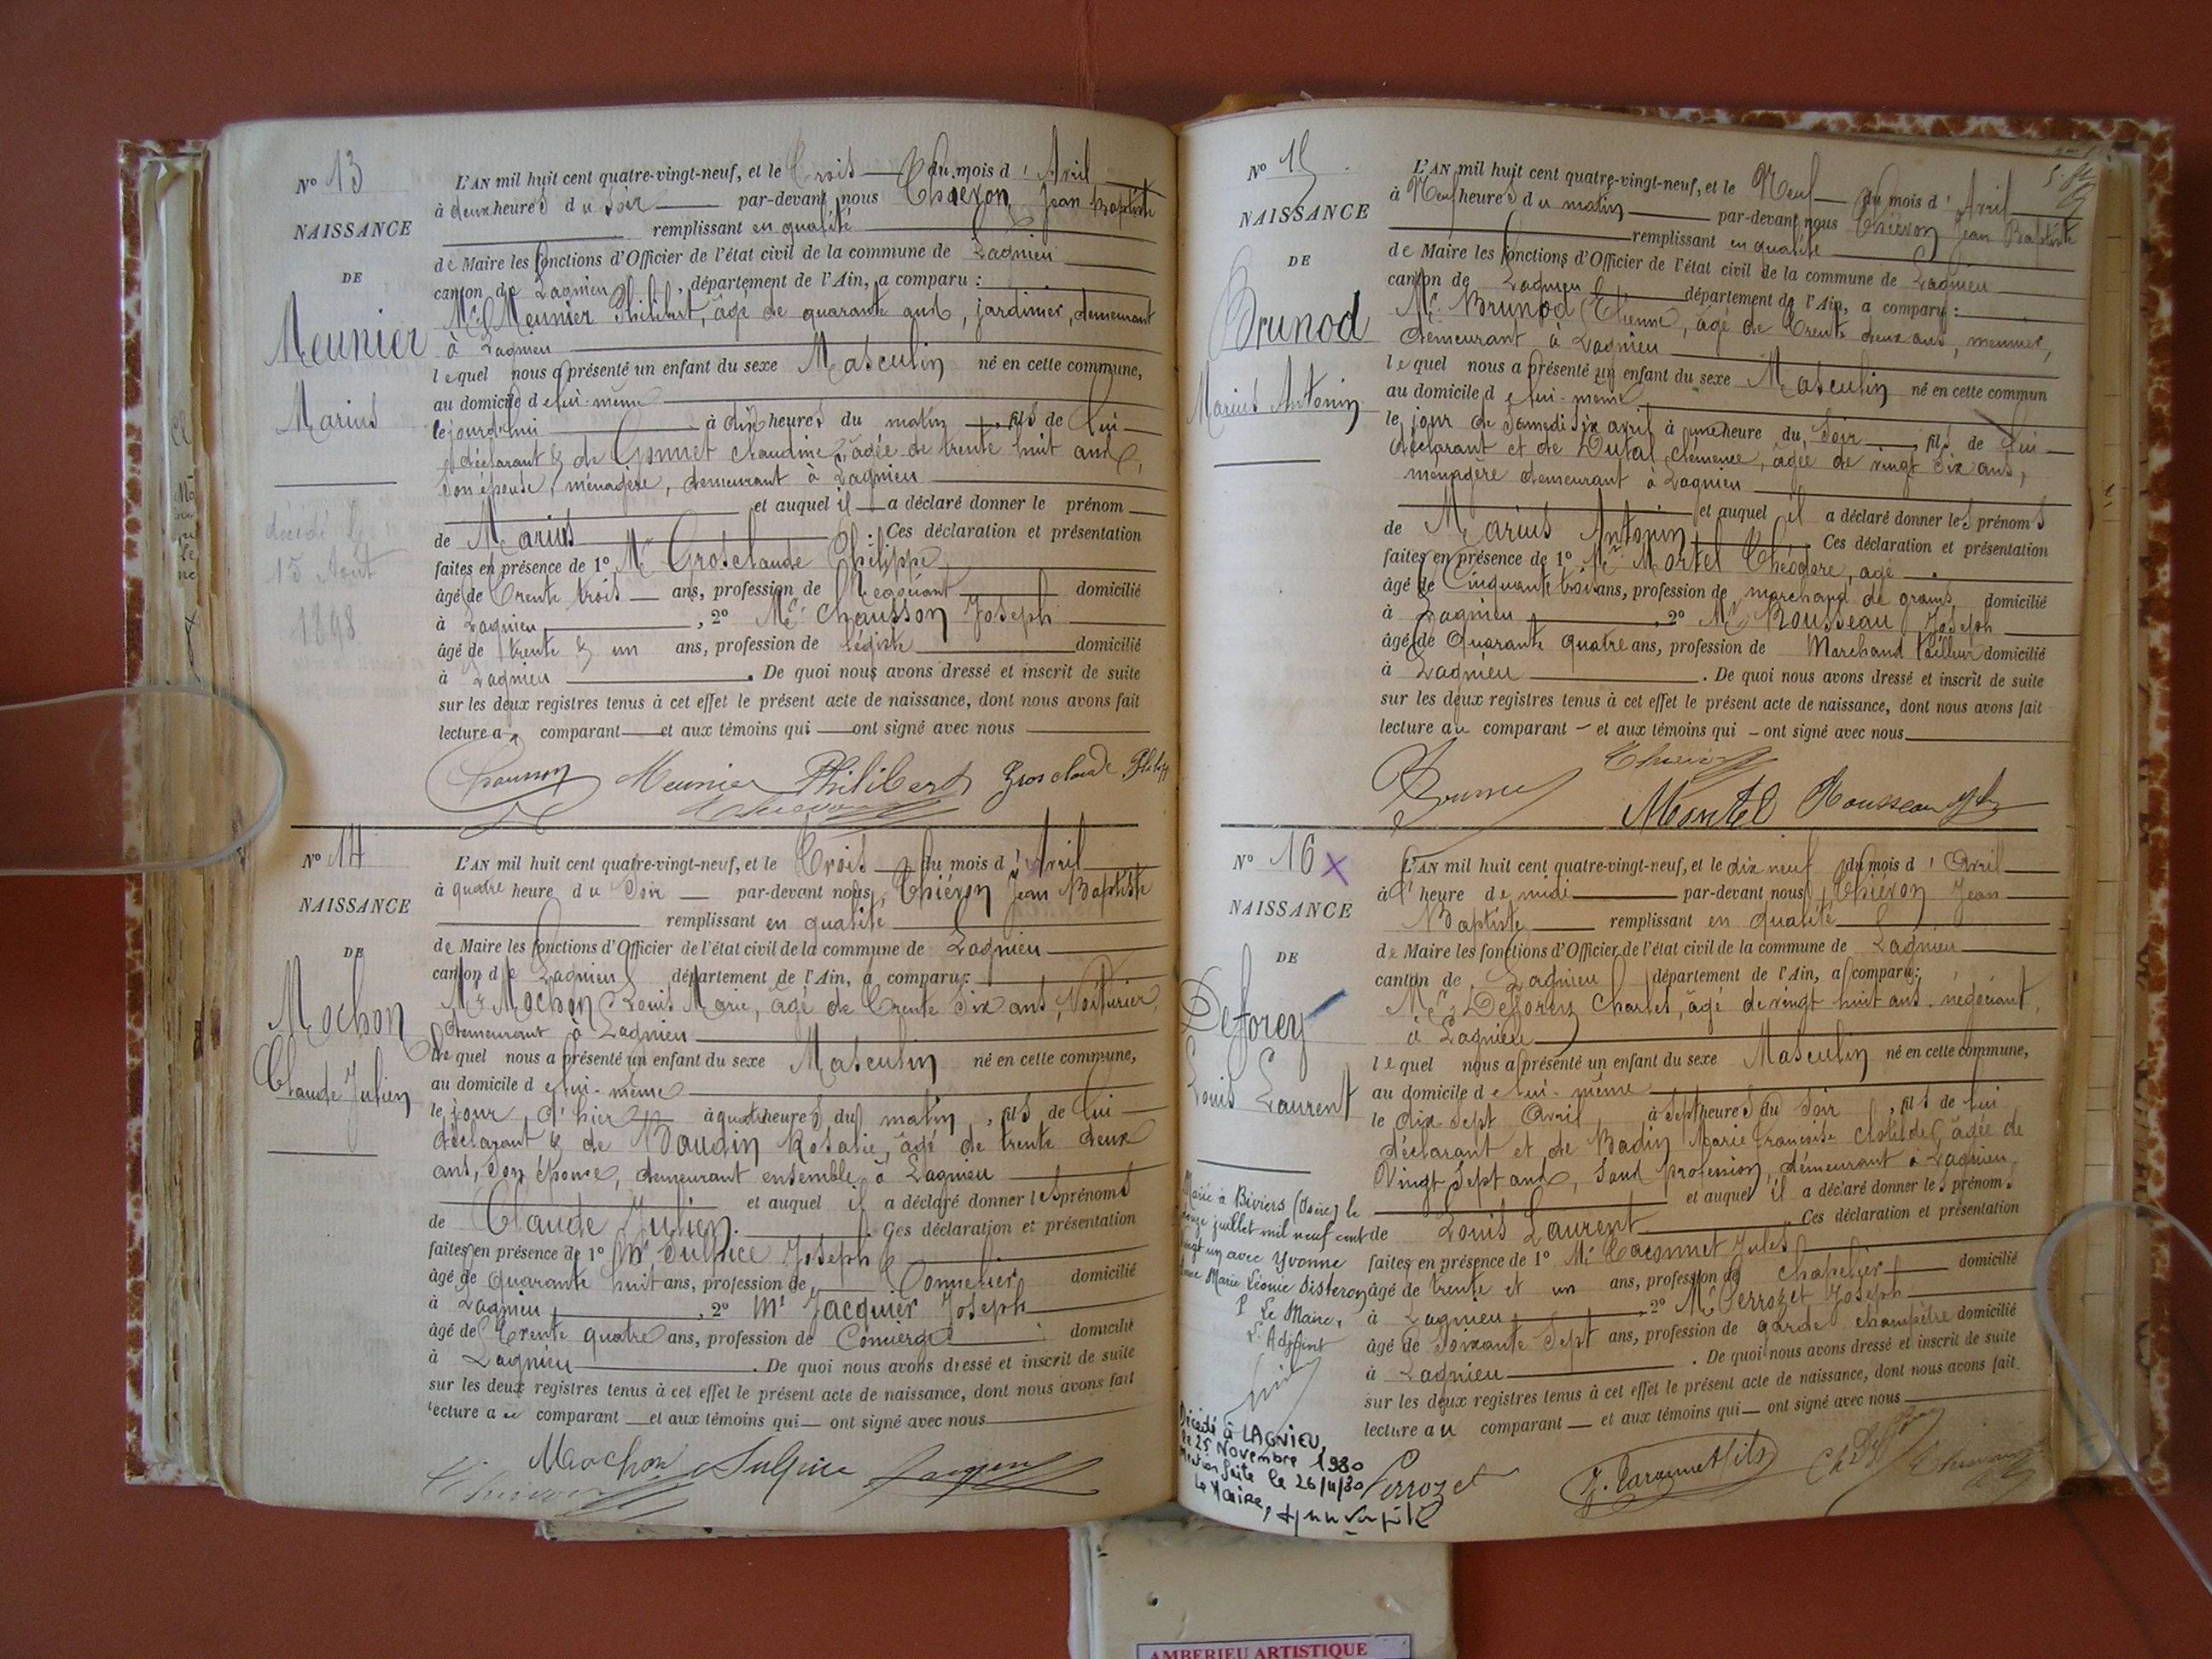 N° 13
NAISSANCE
DE
Meunier
Marius
décédé le
15 Août
1898
L'AN mil huit cent quatre-vingt-neuf, et le Trois du mois d' Avril
à deux heures du soir par-devant nous Thiévon Jean Baptiste
remplissant en qualité
de Maire les fonctions d'Officier de l'état civil de la commune de Lagnieu
canton de Lagnieu, département de l'Ain, a comparu :
Mr Meunier Philibert, âgé de quarante ans, jardinier, demeurant
à Lagnieu
lequel nous a présenté un enfant du sexe Masculin né en cette commune,
au domicile de lui-même
le jourd'hui à dix heures du matin, fils de lui
déclarant & de Gonnet Claudine, âgée de trente huit ans,
son épouse, ménagère, demeurant à Lagnieu
et auquel il a déclaré donner le prénom
de Marius. Ces déclaration et présentation
faites en présence de 1° Mr Grosclaude Philippe
âgé de Trente trois ans, profession de Négociant domicilié
à Lagnieu, 2° Mr Chausson Joseph
âgé de trente & un ans, profession de légiste domicilié
à Lagnieu. De quoi nous avons dressé et inscrit de suite
sur les deux registres tenus à cet effet le présent acte de naissance, dont nous avons fait
lecture au comparant et aux témoins qui ont signé avec nous
Chausson Meunier Philibert Grosclaude
N° 14
NAISSANCE
DE
Mochon
Claude Julien
L'AN mil huit cent quatre-vingt-neuf, et le Trois du mois d' Avril
à quatre heure du soir par-devant nous, Thiévon Jean Baptiste
remplissant en qualité
de Maire les fonctions d'Officier de l'état civil de la commune de Lagnieu
canton de Lagnieu département de l'Ain, a comparu :
Mr Mochon Louis Marie, âgé de Trente six ans, Voiturier,
demeurant à Lagnieu
lequel nous a présenté un enfant du sexe Masculin né en cette commune,
au domicile de lui-même
le jour d'hier à quatre heures du matin, fils de lui
déclarant & de Baudin Rosalie, âgé de trente deux
ans, son épouse, demeurant ensemble à Lagnieu
et auquel il a déclaré donner les prénoms
de Claude Julien. Ces déclaration et présentation
faites en présence de 1° Mr Sulpice Joseph
âgé de quarante huit ans, profession de Tonnelier domicilié
à Lagnieu, 2° Mr Jacquier Joseph
âgé de Trente quatre ans, profession de Concierge domicilié
à Lagnieu. De quoi nous avons dressé et inscrit de suite
sur les deux registres tenus à cet effet le présent acte de naissance, dont nous avons fait
lecture au comparant et aux témoins qui ont signé avec nous
Mochon Sulpice
N° 15
NAISSANCE
DE
Brunod
Marius Antonin
L'AN mil huit cent quatre-vingt-neuf, et le Neuf du mois d' Avril
à Neuf heures du matin par-devant nous Thiévon Jean Baptiste
remplissant en qualité
de Maire les fonctions d'Officier de l'état civil de la commune de Lagnieu
canton de Lagnieu département de l'Ain, a comparu :
Mr Brunod Etienne, âgé de Trente deux ans, meunier,
demeurant à Lagnieu
lequel nous a présenté un enfant du sexe Masculin né en cette commun
au domicile de lui-même
le jour de Samedi six avril à une heure du soir, fils de lui
déclarant et de Dutal Clémence, âgée de vingt six ans,
ménagère demeurant à Lagnieu
et auquel il a déclaré donner les prénoms
de Marius Antonin Ces déclaration et présentation
faites en présence de 1° Mr Mortel Théodore, âgé
âgé de Cinquante trois ans, profession de marchand de grains domicilié
à Lagnieu, 2° Mr Rousseau Joseph
âgé de Quarante quatre ans, profession de Marchand Tailleur domicilié
à Lagnieu. De quoi nous avons dressé et inscrit de suite
sur les deux registres tenus à cet effet le présent acte de naissance, dont nous avons fait
lecture au comparant et aux témoins qui ont signé avec nous
Mortel Rousseau
N° 16 X
NAISSANCE
DE
Deforey
Louis Laurent
Marié à Biviers (Isère) le
douze juillet mil neuf cent
vingt un avec Yvonne
Marie Léonie Disteron
P. Le Maire,
L'Adjoint
Décédé à LAGNIEU,
le 25 Novembre 1980
Mention faite le 26/11/80
Le Maire,
L'AN mil huit cent quatre-vingt-neuf, et le dix neuf du mois d' Avril
à l'heure de midi par-devant nous, Thiévon Jean
Baptiste remplissant en qualité
de Maire les fonctions d'Officier de l'état civil de la commune de Lagnieu
canton de Lagnieu département de l'Ain, a comparu :
Mr Deforey Charles, âgé de vingt huit ans. négociant,
à Lagnieu
lequel nous a présenté un enfant du sexe Masculin né en cette commune,
au domicile de lui-même
le dix sept Avril à sept heures du soir, fils de lui
déclarant et de Badin Marie Françoise Clotilde, âgée de
Vingt sept ans, sans profession, demeurant à Lagnieu
et auquel il a déclaré donner les prénoms
de Louis Laurent Ces déclaration et présentation
faites en présence de 1° Mr Jules
âgé de trente et un ans, profession de chapelier domicilié
à Lagnieu, 2° Mr Perrozet Joseph
âgé de soixante sept ans, profession de garde champêtre domicilié
à Lagnieu. De quoi nous avons dressé et inscrit de suite
sur les deux registres tenus à cet effet le présent acte de naissance, dont nous avons fait
lecture au comparant et aux témoins qui ont signé avec nous
Perrozet
AMBERIEU ARTISTIQUE